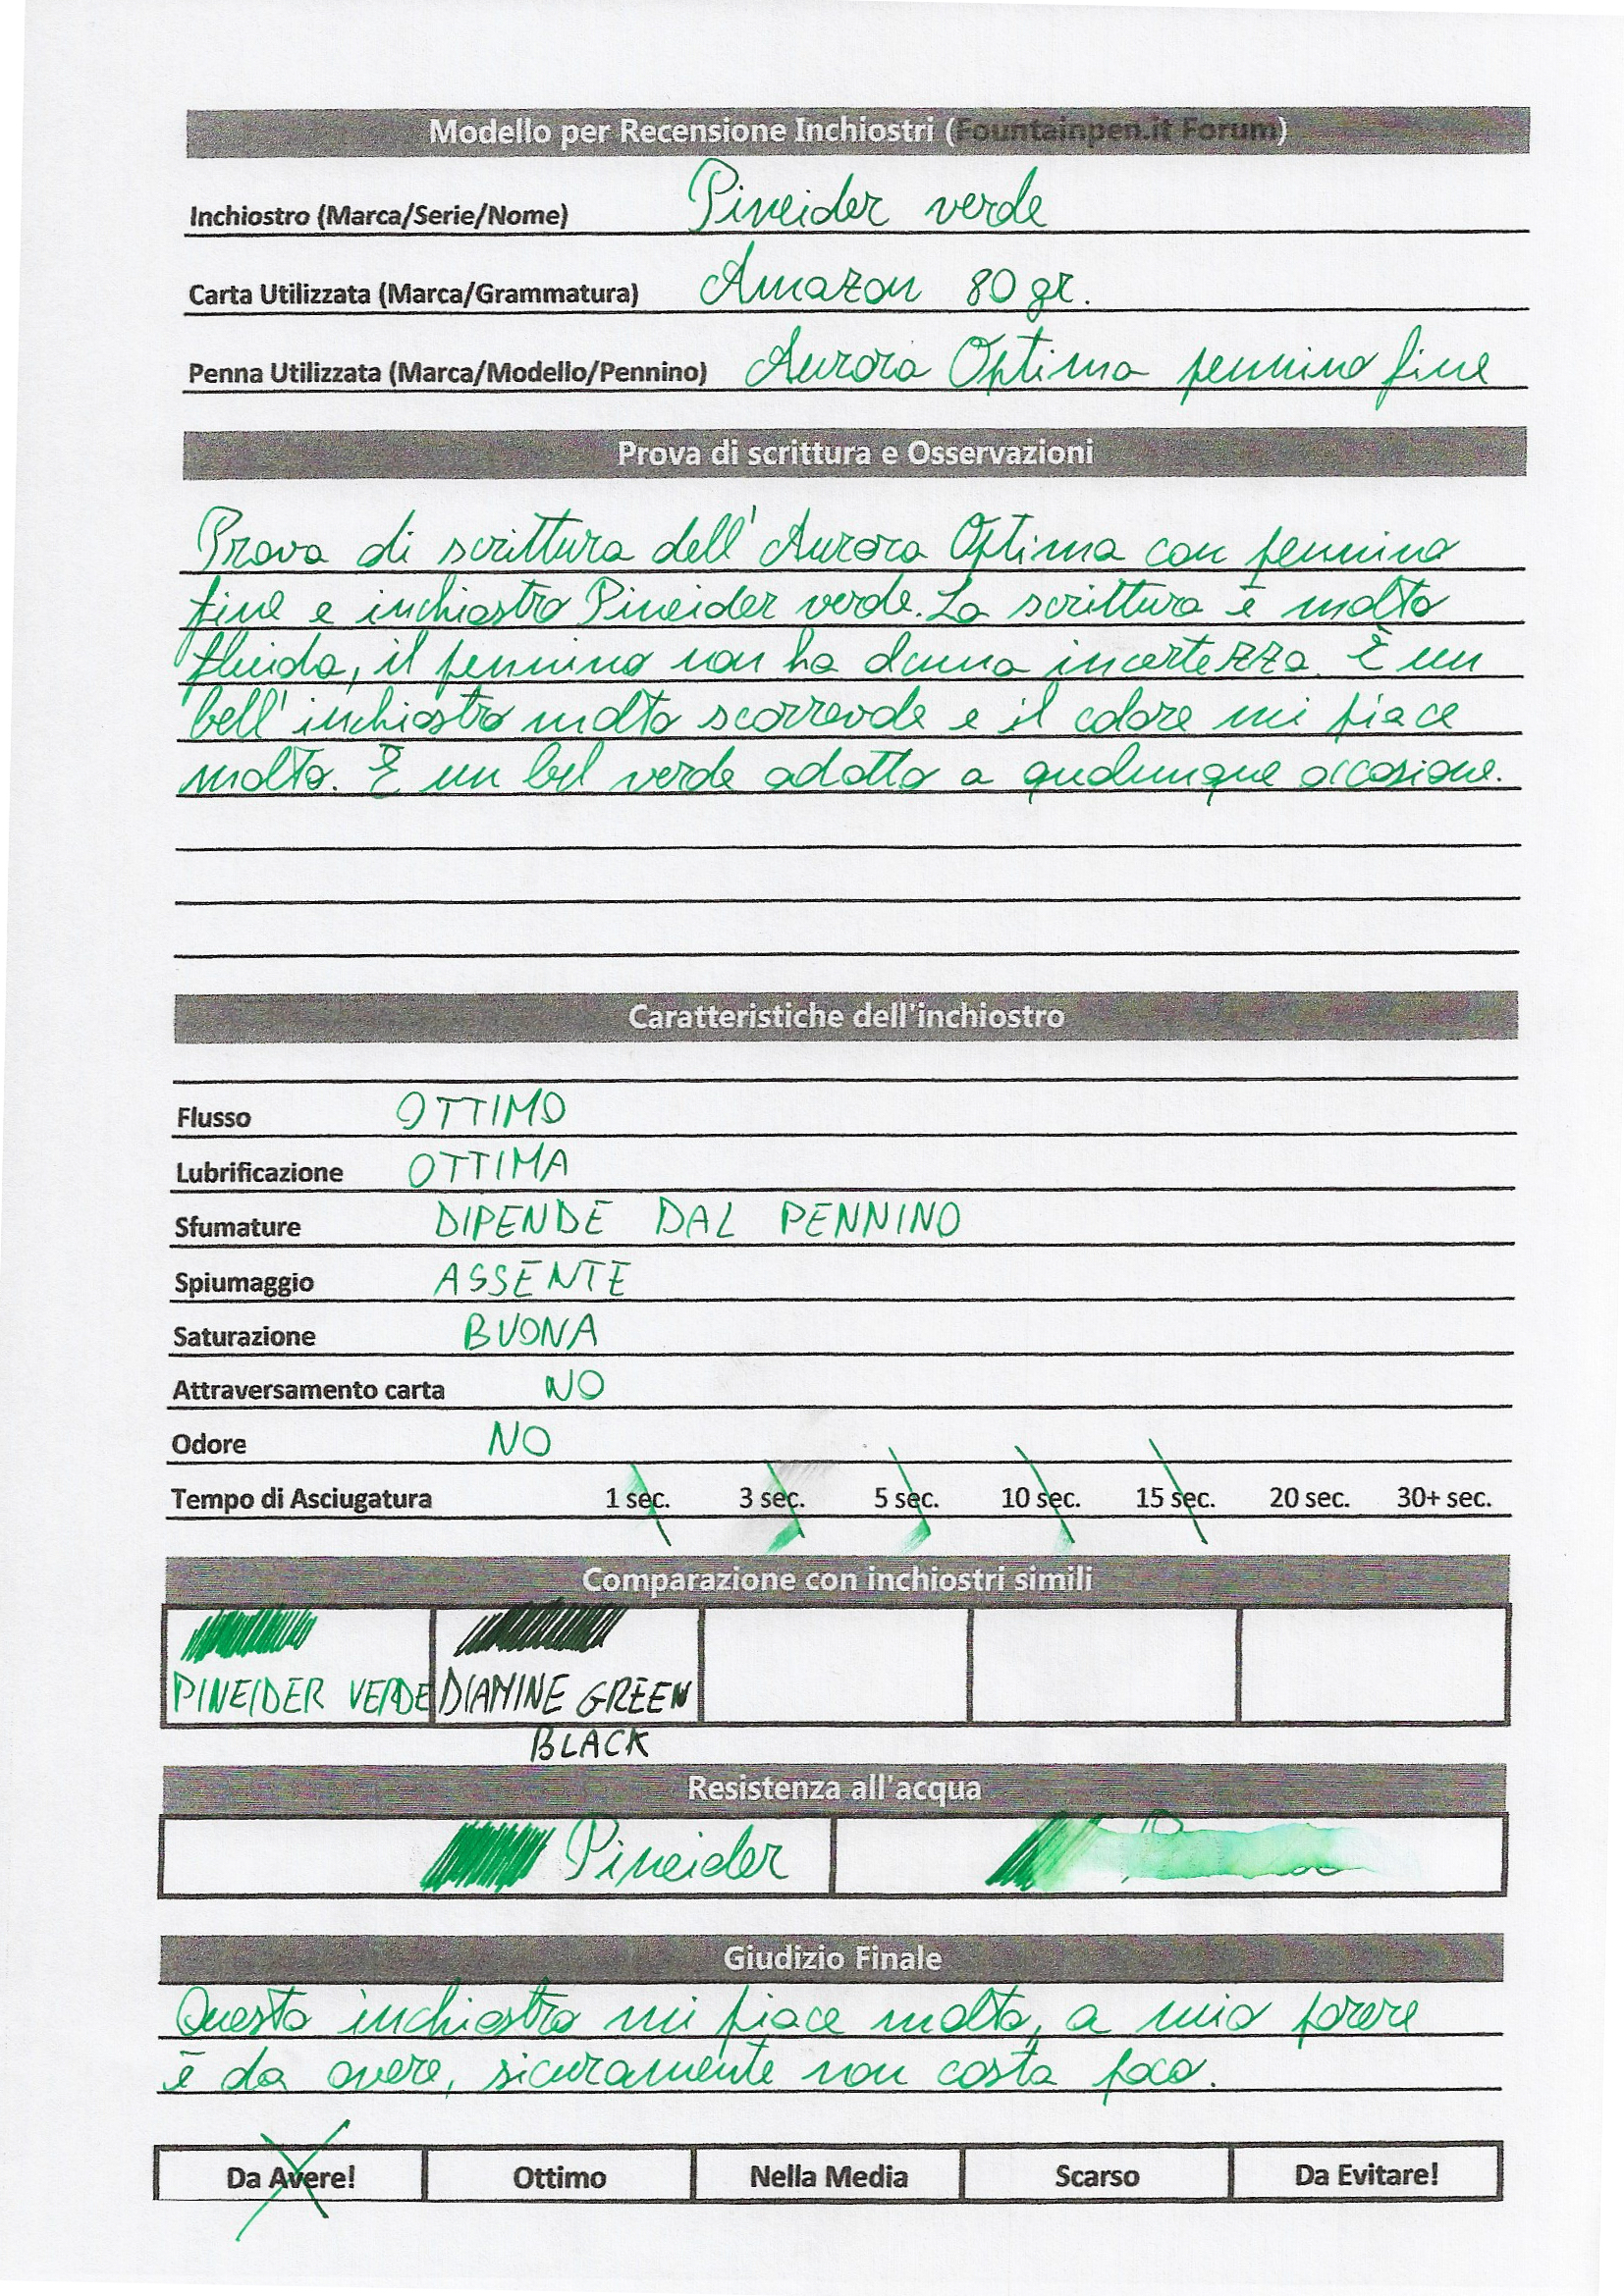 Modello per Recensione Inchiostri (Fountainpen.it Forum)
Inchiostro (Marca/Serie/Nome) Pineider verde
Carta Utilizzata (Marca/Grammatura) Amazon 80 gr.
Penna Utilizzata (Marca/Modello/Pennino) Aurora Optima pennino fine
Prova di scrittura e Osservazioni
Prova di scrittura dell'Aurora Optima con pennino
fine e inchiostro Pineider verde. La scrittura è molto
fluida, il pennino non ha alcuna incertezza. È un
bell'inchiostro molto scorrevole e il colore mi piace
molto. È un bel verde adatto a qualunque occasione.
Caratteristiche dell'inchiostro
Flusso OTTIMO
Lubrificazione OTTIMA
Sfumature DIPENDE DAL PENNINO
Spiumaggio ASSENTE
Saturazione BUONA
Attraversamento carta NO
Odore NO
Tempo di Asciugatura 1 sec. 3 sec. 5 sec. 10 sec. 15 sec. 20 sec. 30+ sec.
Comparazione con inchiostri simili
PINEIDER VERDE DIAMINE GREEN
BLACK
Resistenza all'acqua
Pineider
Giudizio Finale
Questo inchiostro mi piace molto, a mio parere
è da avere, sicuramente non costa poco.
Da Avere! Ottimo Nella Media Scarso Da Evitare!